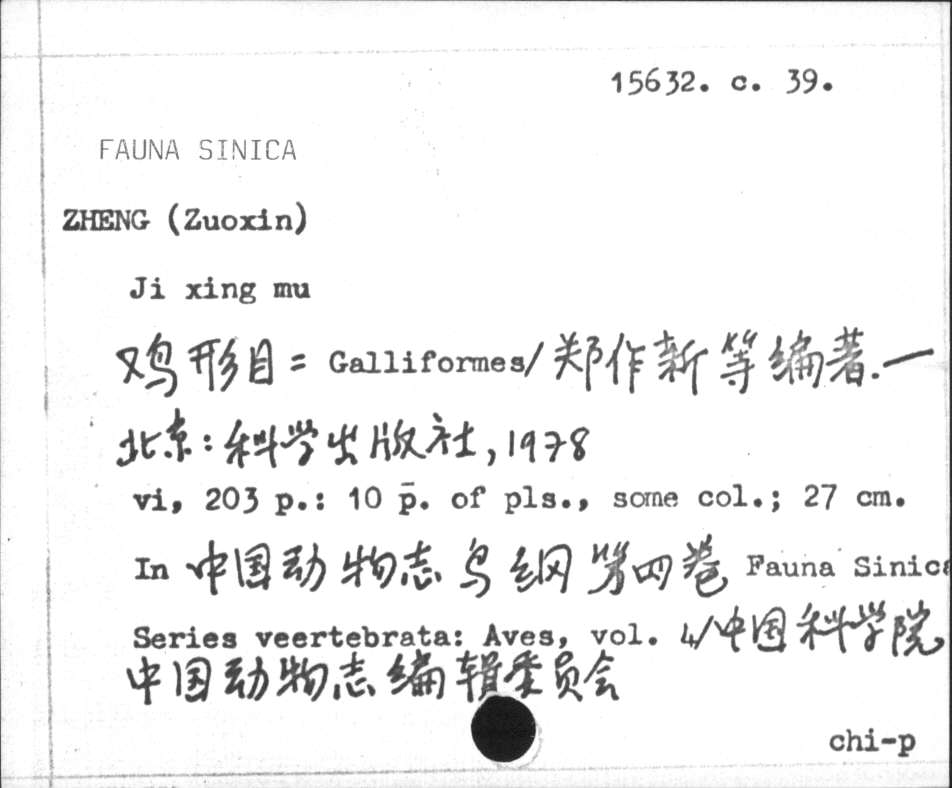 15632. c. 39.
FAUNA SINICA
ZHENG (Zuoxin)
Ji xing mu
鸡形目 = Galliformes/郑作新等编著.一
北京:科学出版社,1978
vi, 203 p.: 10 p̄. of pls., some col.; 27 cm.
In 中国动物志 鸟纲 第四卷 Fauna Sinica
Series veertebrata: Aves, vol. 4/中国科学院
中国动物志编辑委员会
chi-p